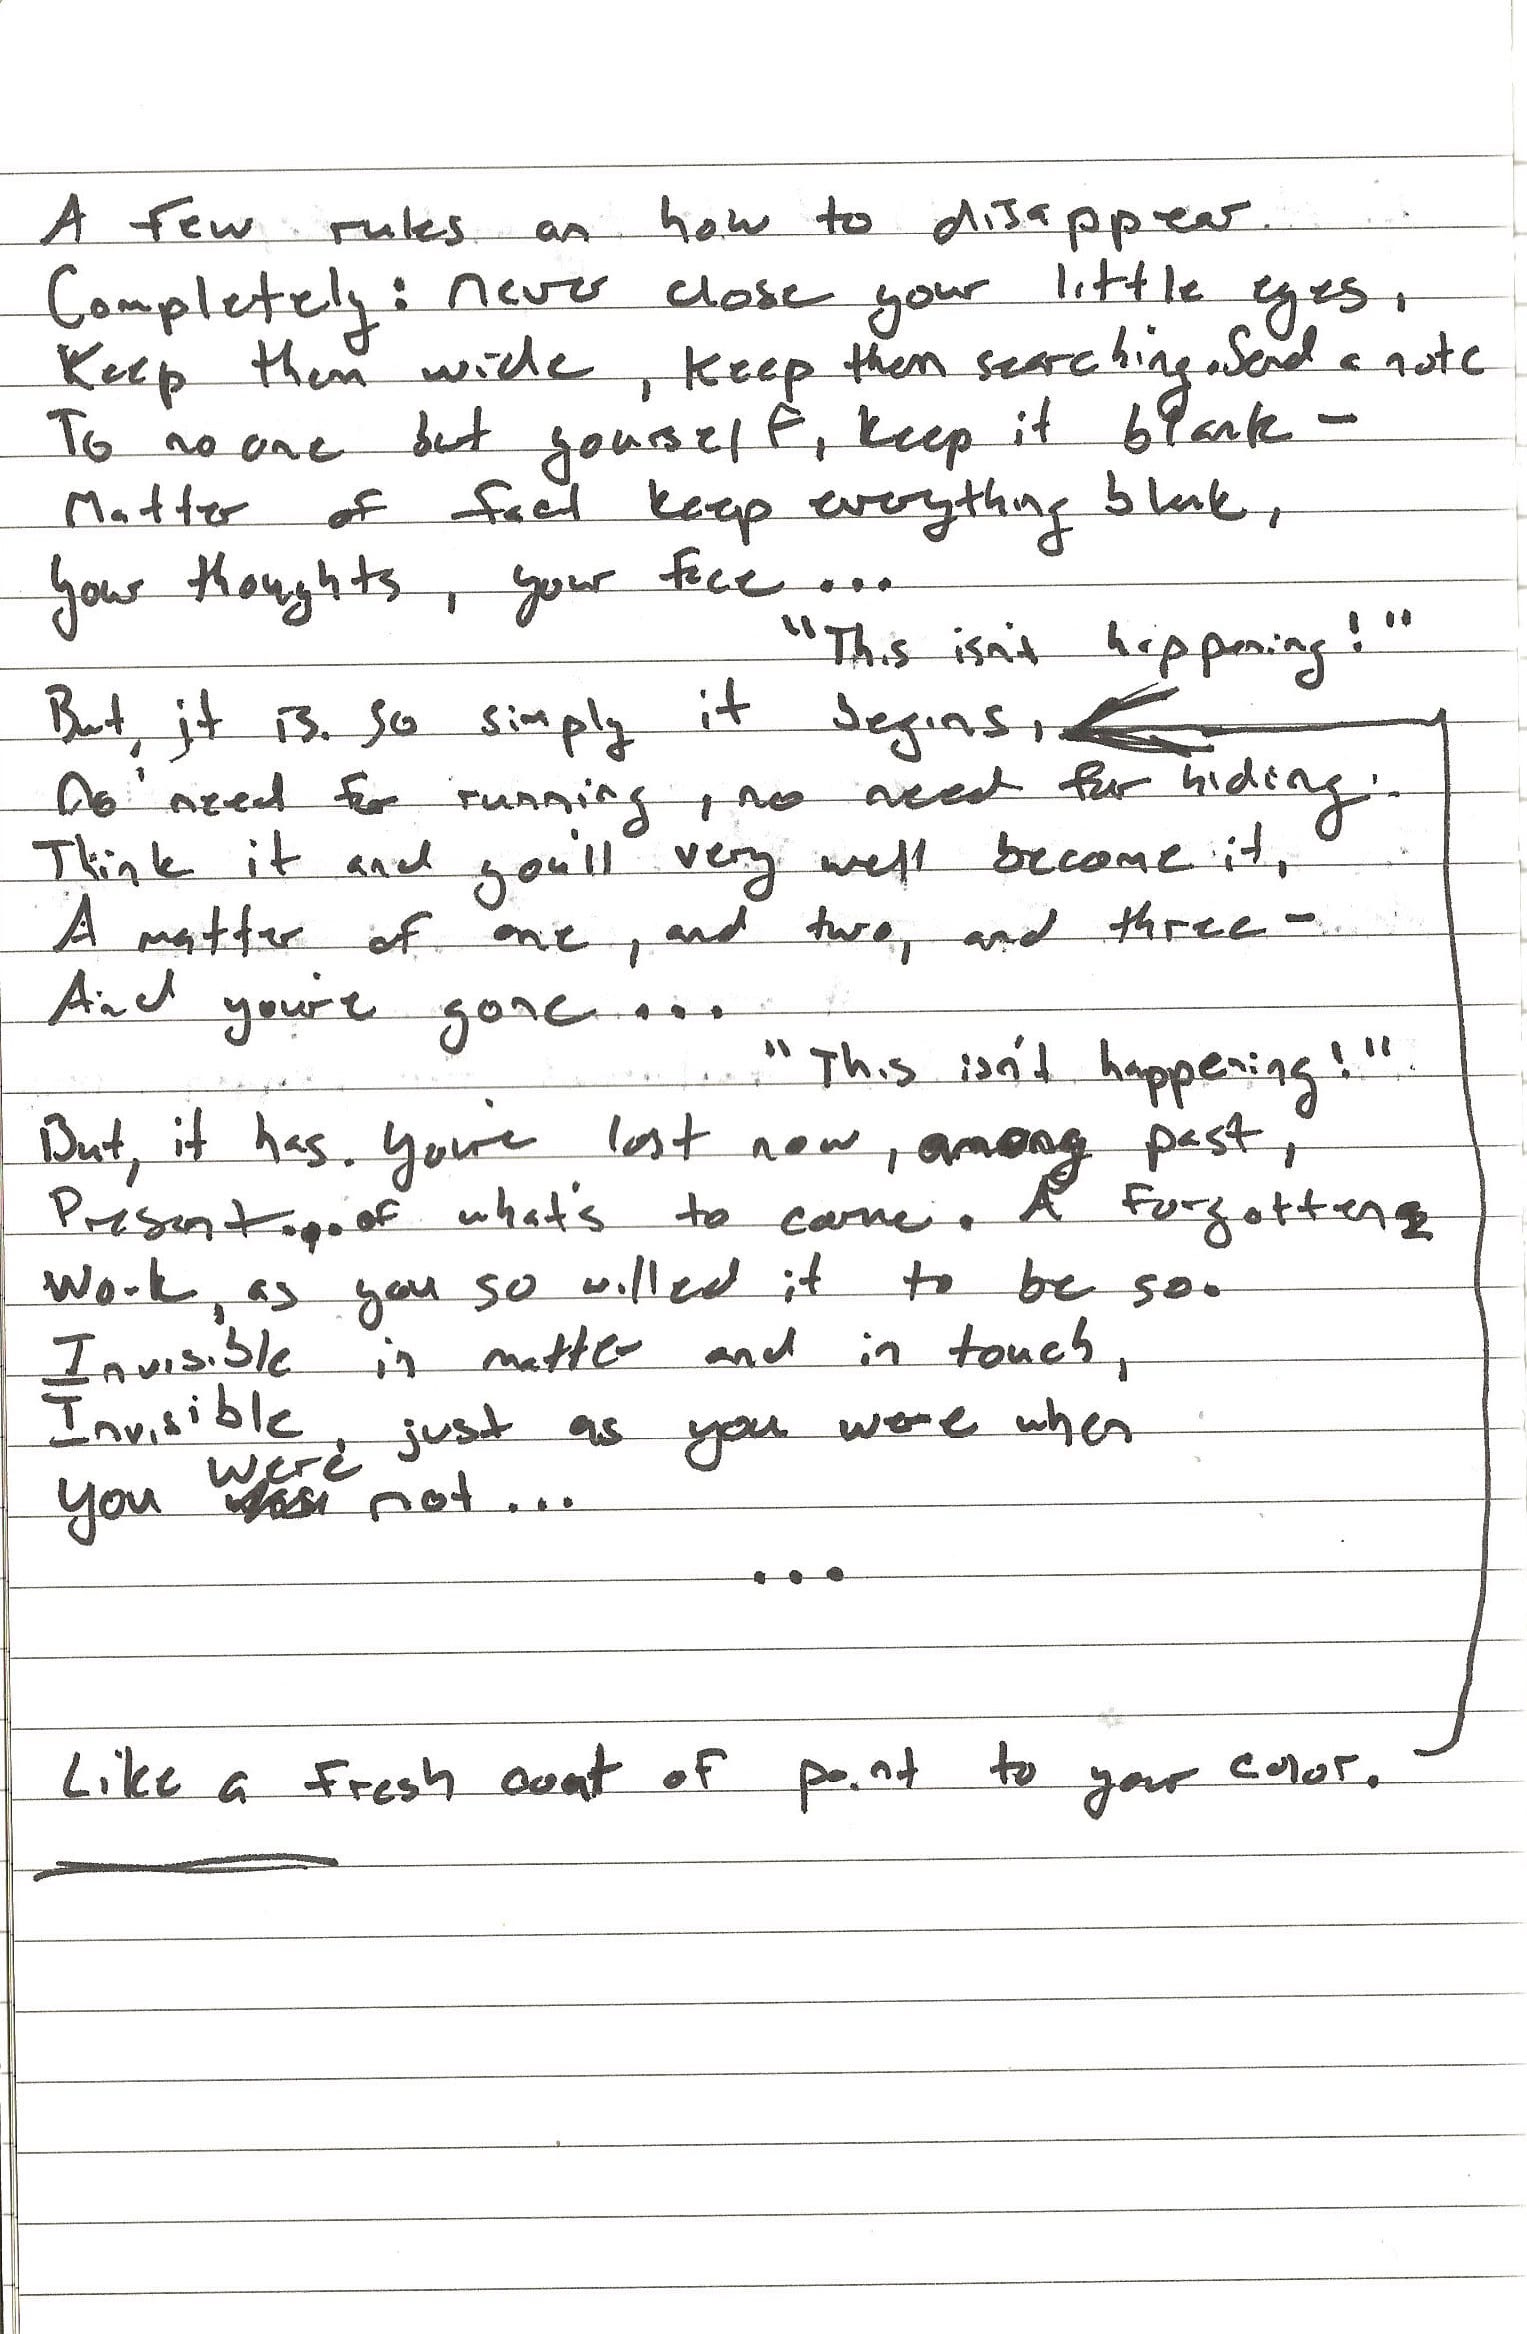 A few rules on how to disappear
Completely: never close your little eyes,
Keep them wide, keep them searching. Send a note
To no one but yourself, keep it blank -
Matter of fact keep everything blank,
Your thoughts, your face ...
"This isn't happening!"
But, it is. So simply it begins,
No need for running, no need for hiding.
Think it and you'll very well become it,
A matter of one, and two, and three -
And you're gone ...
"This isn't happening!"
But, it has. You're lost now, among past,
Present... of what's to come. A forgotten
Work, as you so willed it to be so.
Invisible in matter and in touch,
Invisible, just as you were when
were
you not ...
...
Like a fresh coat of paint to your color.